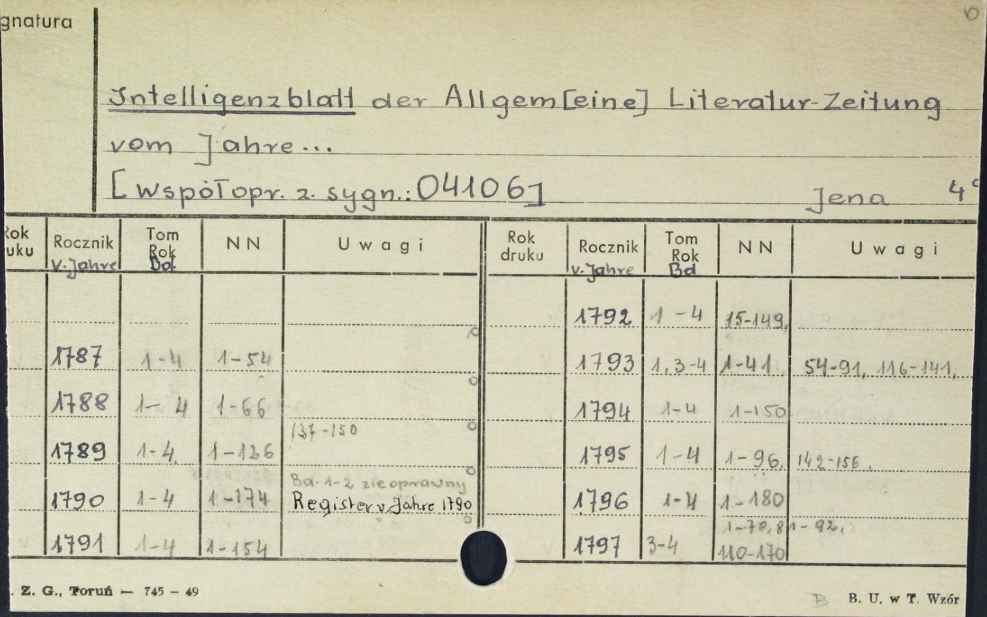 gnatura
Intelligenzblatt der Allgem[eine] Literatur-Zeitung
vom Jahre...
[współopr. z. sygn.: 041061
Jena 4°
Rok druku Rocznik v. Jahre Tom Rok Bd NN Uwagi Rok druku Rocznik v. Jahre Tom Rok Bd NN Uwagi
1792 1-4 15-149,
1787 1-4 1-54 1793 1,3-4 1-41 54-91, 116-141,
1788 1-4 1-66 1794 1-4 1-150
137-150
1789 1-4 1-126 1795 1-4 1-96, 142-156.
Bd. 1-2 zie oprawny
1790 1-4 1-174 Register v. Jahre 1790 1796 1-4 1-180
1-70, 81-92,
1791 1-4 1-154 1797 3-4 110-170
. Z. G., Toruń — 745 – 49 B. U. w T. Wzór